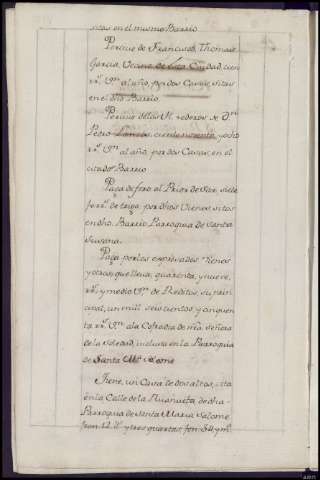 sitas en el mismo Barrio
Percive de Francisco, Thomas
Garcia, Vecino de esta Ciudad, cien
rrs. Vn. al año, por dos Casas, sitas
en el dho Barrio
Percive de los H. rederos de Dn.
Pedro ciento noventa yocho
rrs. Vn. al año, por dos Casas, en el
citado Barrio
Paga de foro al Prior de Sar, siete
ferrs. de trigo, por dhos Vienes sitos
en dho. Barrio Parroquia de Santa
Susana.
Paga por los expresados Vienes
y otros, que lleva, quarenta, y nueve,
rrs. y medio Vn. de Reditos, su prin
cipal, un mill seiscientos, y cinquen
ta rrs. Vn. a la Cofradia de nra. señora
de la Soledad, inclusa en la Parroquia
de Santa Ma. Salome
Tiene, un Casa de dos altos, sita
en la Calle de la Ruanueba de dha
Parroquia de Santa Maria Salome,
fron. 12. Vs. y tres quartas, fon. 34 y m.